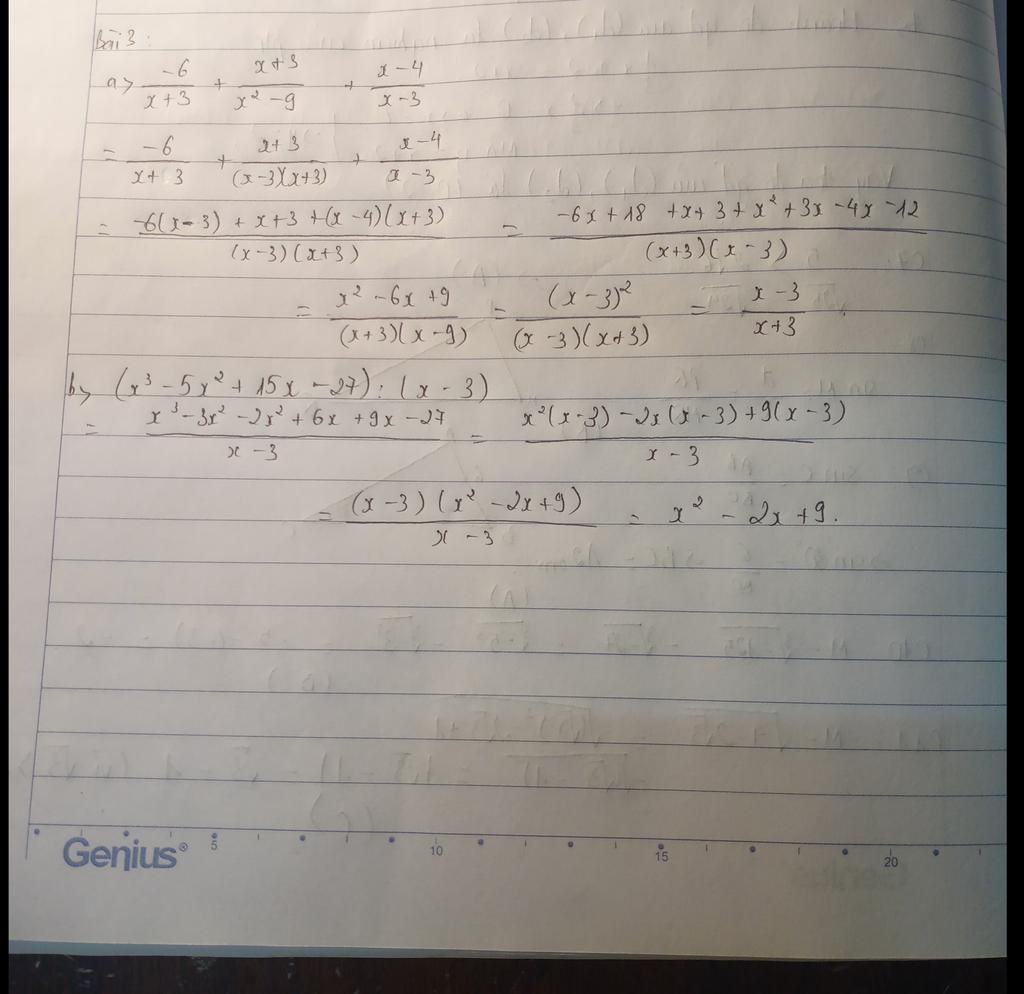 Bài 3:
a> -6/(x+3) + (x+3)/(x² -9) + (x-4)/(x-3)
= -6/(x+3) + (x+3)/((x-3)(x+3)) + (x-4)/(x-3)
= (-6(x-3) + x+3 +(x-4)(x+3))/((x-3)(x+3)) = (-6x+18 +x+3+x²+3x-4x-12)/((x+3)(x-3))
= (x² -6x+9)/((x+3)(x-9)) = (x-3)²/((x-3)(x+3)) = (x-3)/(x+3).
b> (x³ -5x² + 15x -27) : (x-3)
= (x³-3x² -2x² +6x +9x -27)/(x-3) = (x²(x-3) -2x(x-3)+9(x-3))/(x-3)
= ((x-3)(x² -2x+9))/(x-3) = x² -2x+9.
Genius® 5 10 15 20